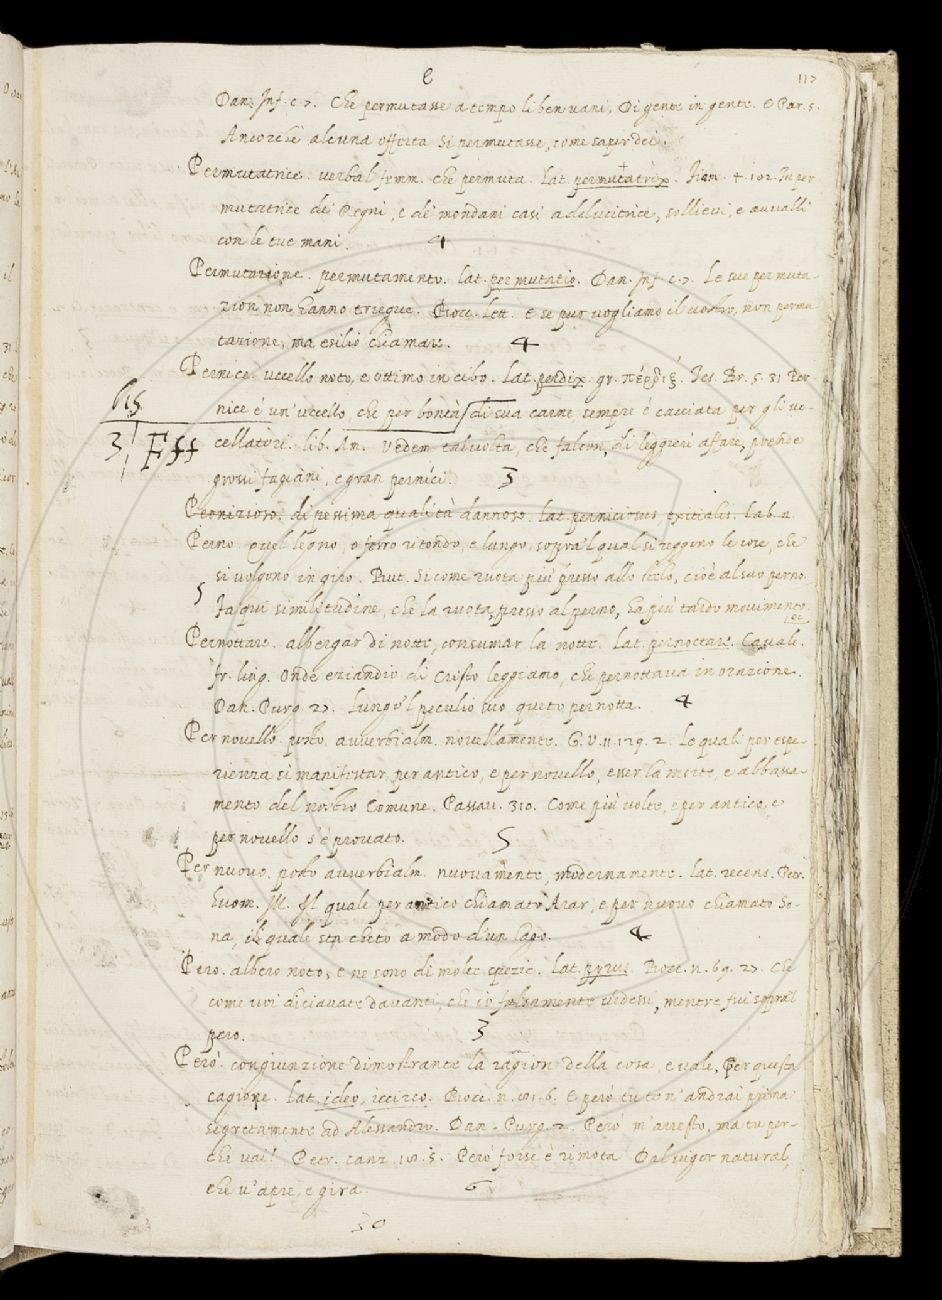 e
117
Dan. Inf. c. 7. Che permutasse a tempo li ben vani, Di gente in gente. E Par. 5.
Ancorchè alcuna offerta si permutasse, come saper dei.
Permutatrice. verbal femm. che permuta. lat. permutatrix. Fiam. 4. 102. In per
mutatrice de' Regni, e de' mondani casi adducitrice, sollievi, e avvalli
con le tue mani. 4
Permutazione. permutamento. lat. permutatio. Dan. Inf. c. 7. Le sue permuta-
zion non hanno triegue. Bocc. lett. E se pur vogliamo il vostro, non permu
tazione, ma esilio chiamare. 4
Pernice. uccello noto, e ottimo in cibo. lat. perdix. gr. πέρδιξ. Tes. Br. 5. 31 Per-
615
nice é un' uccello, che per bontà di sua carne sempre é cacciata per gli uc-
3 Fff
cellatori. lib. Am. Vedem talvolta, che falconi di leggieri affare, prende
grossi fagiani, e gran pernici. 3
Pernizioso. di pessima qualità dannoso. lat. perniciosus, exitialis. Lab. a
Perno. quel legno, o ferro ritondo, e lungo, sopra 'l qual si reggono le cose, che
si volgono in giro. But. Sì come ruota più presso allo stelo, cioè al suo perno.
5
Fa qui similitudine, che la ruota, presso al perno, ha più tardo movimento.
Pernottare. albergar di notte, consumar la notte. lat. pernoctare. Cavalc.
fr. ling. Onde eziandio di Cristo leggiamo, che pernottava in orazione.
Dan. Purg. 27. Lungo 'l peculio suo queto pernotta. 4
Per novello. posto avverbialm. novellamente. G. V. 11. 129. 2. Le quali per espe-
rienza si manifestar per antico, e per novello, esser la morte, e abbassa-
mento del nostro Comune. Passav. 310. Come più volte, e per antico, e
per novello s'è provato. 5
Per nuovo. posto avverbialm. nuovamente, modernamente. lat. recens. Petr.
huom. ill. Il quale per antico chiamato Arar, e per nuovo chiamato So-
na, il quale sta cheto a modo d'un lago. 4
Pero. albero noto, e ne sono di molte spezie. lat. pyrus. Bocc. n. 69. 27. Che
come voi diciavate davanti, che io falsamente vedessi, mentre fui sopra 'l
pero. 3
Però. congiunzione dimostrante la ragion della cosa, e vale, Per questa
cagione. lat. ideo, iccirco. Bocc. n. 101. 6. E però tu te n' andrai prima
segretamente ad Alessandro. Dan. Purg. 2. Però m' arresto, ma tu per-
che vai? Petr. canz. 101. 5. Però forse è rimota Dal vigor natural,
che v' apre, e gira. 6
30